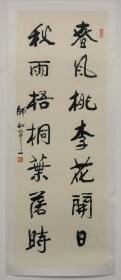 春風桃李花開日
秋雨梧桐葉落時